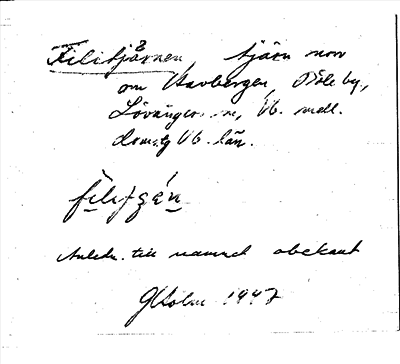 Filitjärnen, tjärn norr
om Stavberget, Böle by,
Lövångers sn, Vb. mell.
doms. Vb. län.
Anledn. till namnet obekant
GHolm 1947